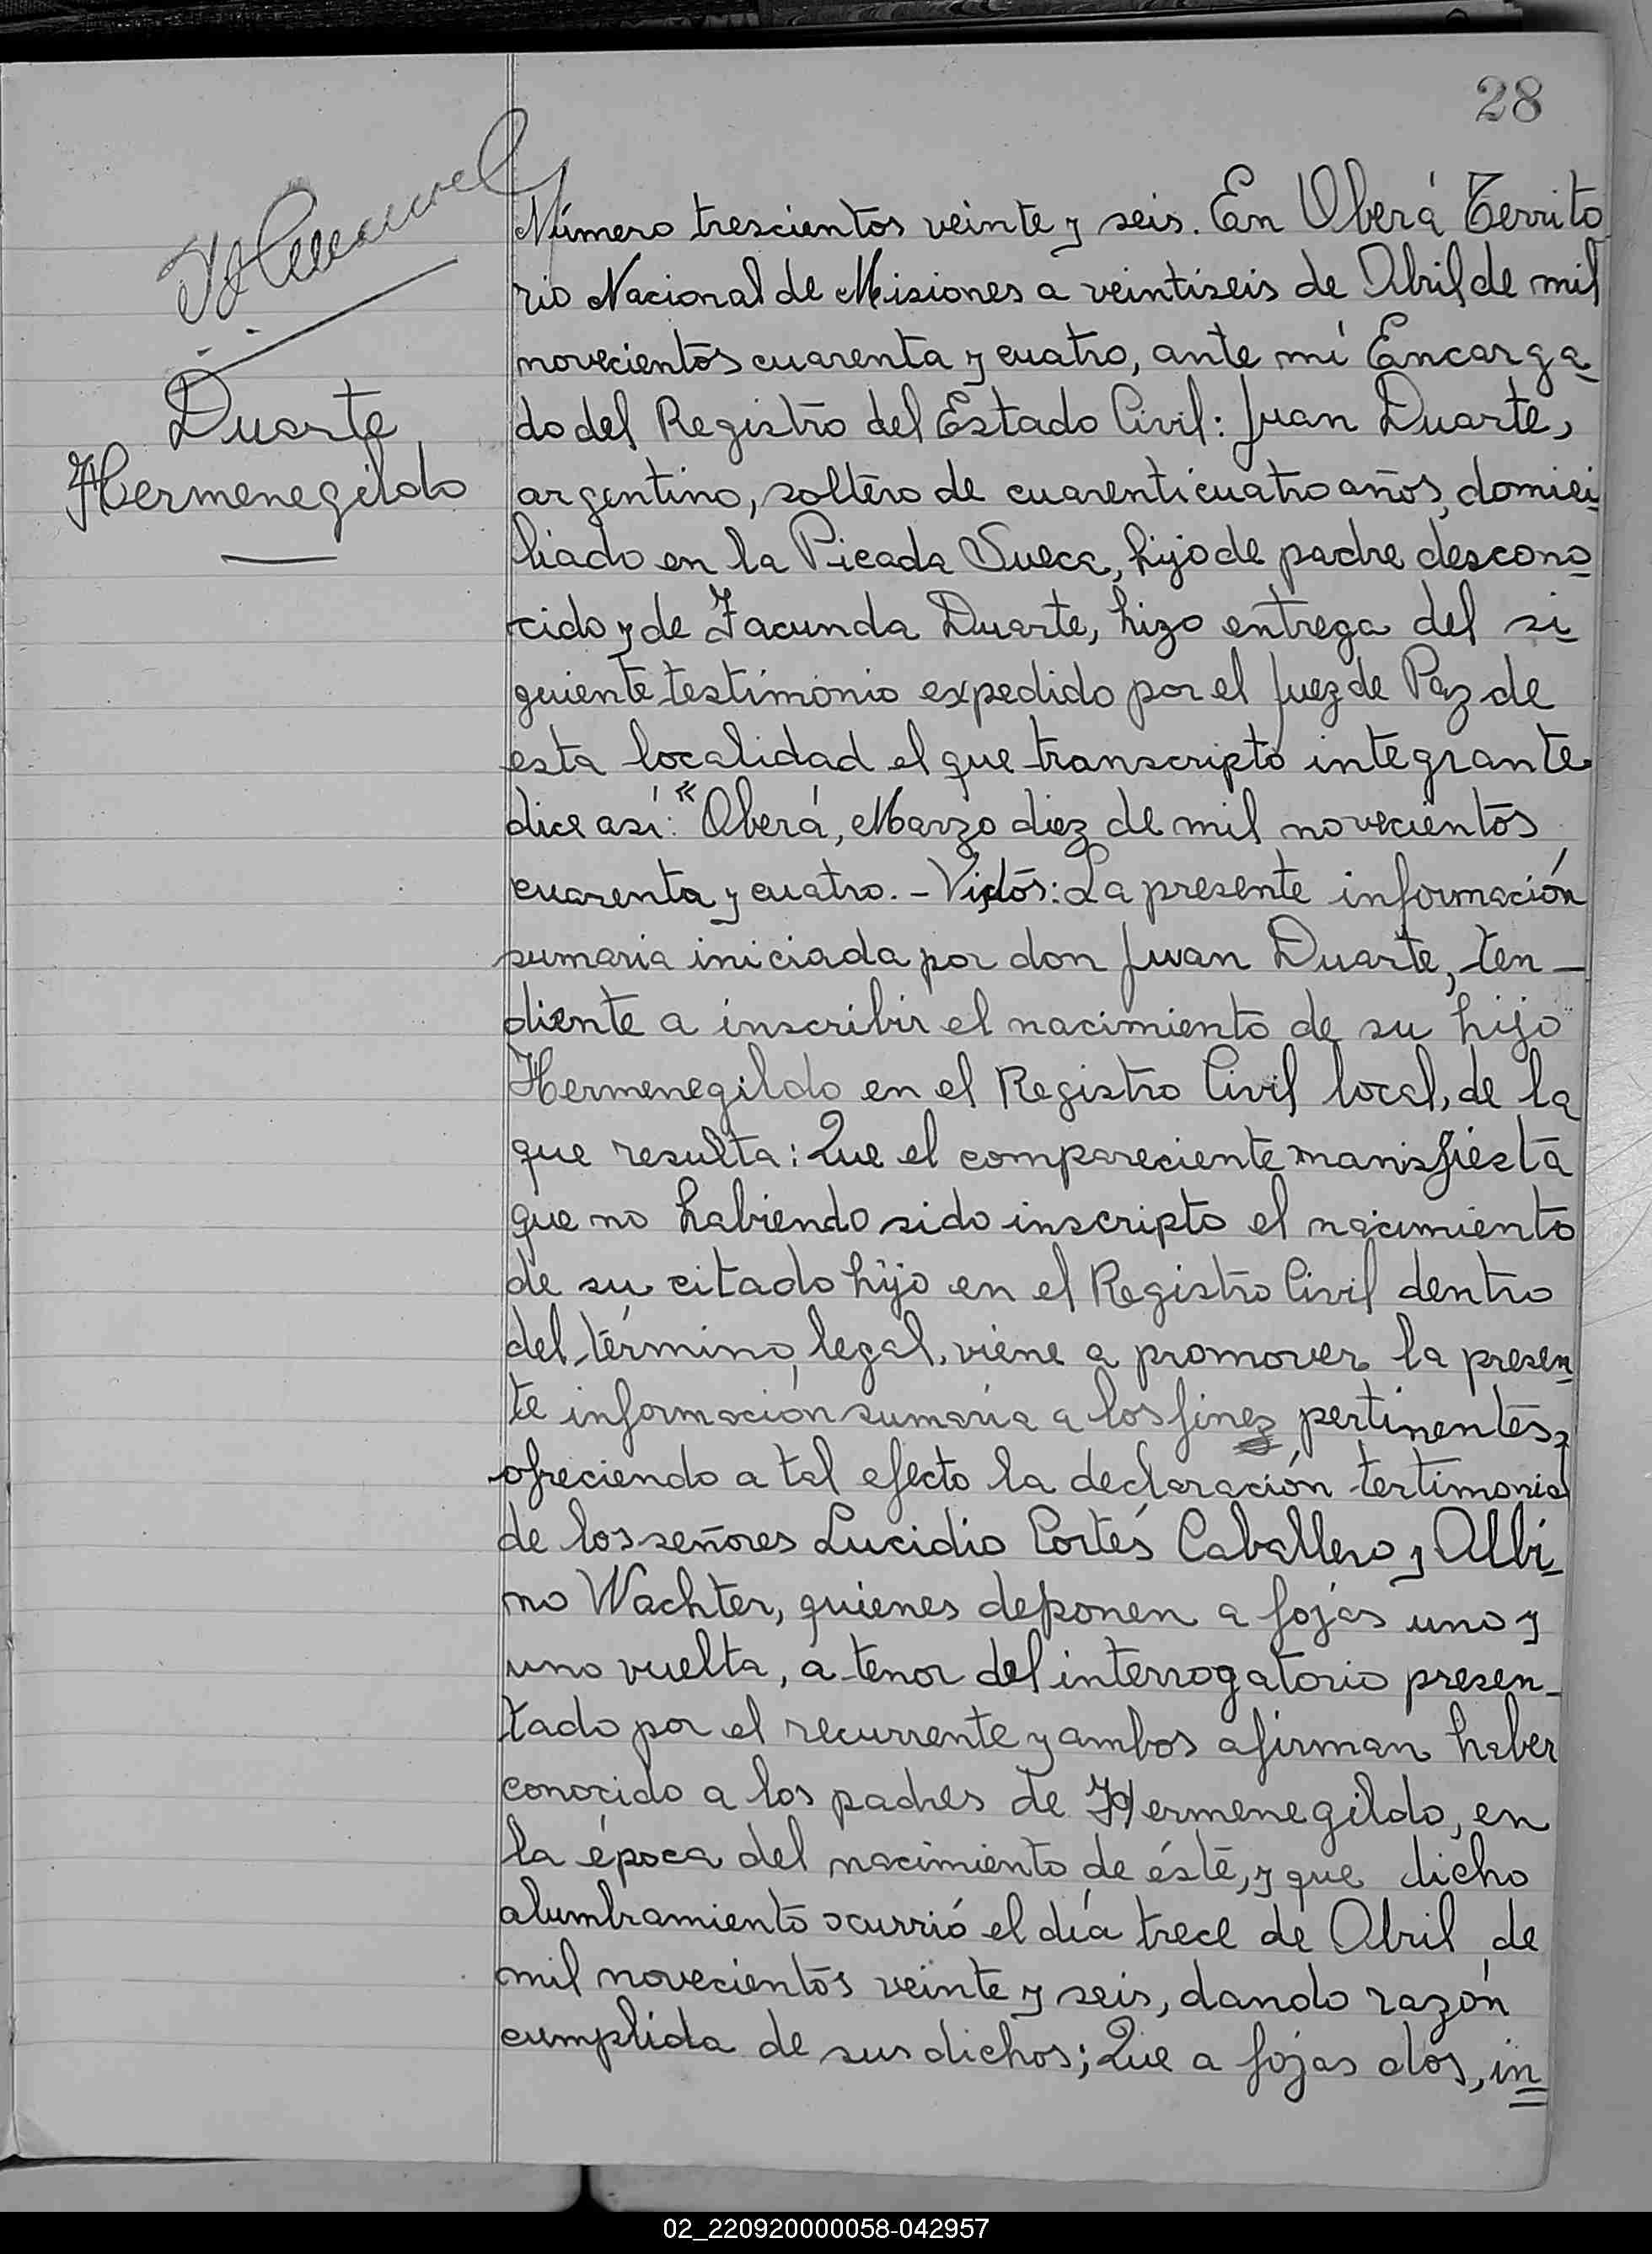 28
Duarte
Hermenegildo
Número trescientos veinte y seis. En Oberá Territo
rio Nacional de Misiones a veintiseis de Abril de mil
novecientos cuarenta y cuatro, ante mí Encarga
do del Registro del Estado Civil: Juan Duarte,
argentino, soltero de cuarenticuatro años, domici
liado en la Picada Sueca, hijo de padre descono
cido y de Facunda Duarte, hizo entrega del si
guiente testimonio expedido por el Juez de Paz de
esta localidad el que transcripto integrante
dice así: "Oberá, Marzo diez de mil novecientos
cuarenta y cuatro. - Vistos: La presente información
sumaria iniciada por don Juan Duarte, ten-
diente a inscribir el nacimiento de su hijo
Hermenegildo en el Registro Civil local, de la
que resulta: Que el compareciente manisfiesta
que no habiendo sido inscripto el nacimiento
de su citado hijo en el Registro Civil dentro
del término legal, viene a promover la presen
te información sumaria a los fines pertinentes,
ofreciendo a tal efecto la declaración tertimonial
de los señores Lucidio Cortés Caballero y Albi
no Wachter, quienes deponen a fojas uno y
uno vuelta, a tenor del interrogatorio presen-
tado por el recurrente y ambos afirman haber
conocido a los padres de Hermenegildo, en
la época del nacimiento de éste, y que dicho
alumbramiento ocurrió el día trece de Abril de
mil novecientos veinte y seis, dando razón
cumplida de sus dichos; Que a fojas dos, in
02_220920000058-042957